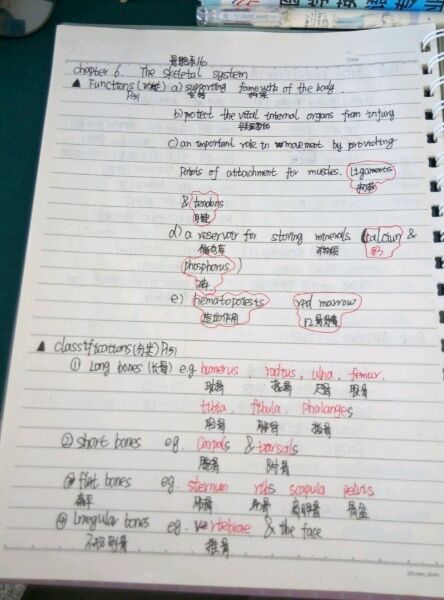 骨骼系统
chapter 6. The skeletal system
▲ Functions (功能) a) supporting framewrk of the body.
P151 支持 构架
b) protect the vital internal organs from injury
c) an important role in movement by providing
Points of attachment for muscles. ligaments
韧带
& tendons
肌腱
d) a reservoir for storing minerals (calcium &
储存库 矿物质 钙
phosphorus)
磷
e) hematopoiesis red marrow
造血作用 红骨髓
▲ classifications (分类) P151
① Long bones (长骨) e.g humerus, radius, ulna, femur.
肱骨 桡骨 尺骨 股骨
tibia, fibula, phalanges
胫骨 腓骨 指骨
② short bones eg. Carpals & tarsals
腕骨 跗骨
③ flat bones eg. sternum ribs scapula pelvis
扁平 胸骨 肋骨 肩胛骨 骨盆
④ Irregular bones eg. vertebrae & the face
不规则骨 椎骨